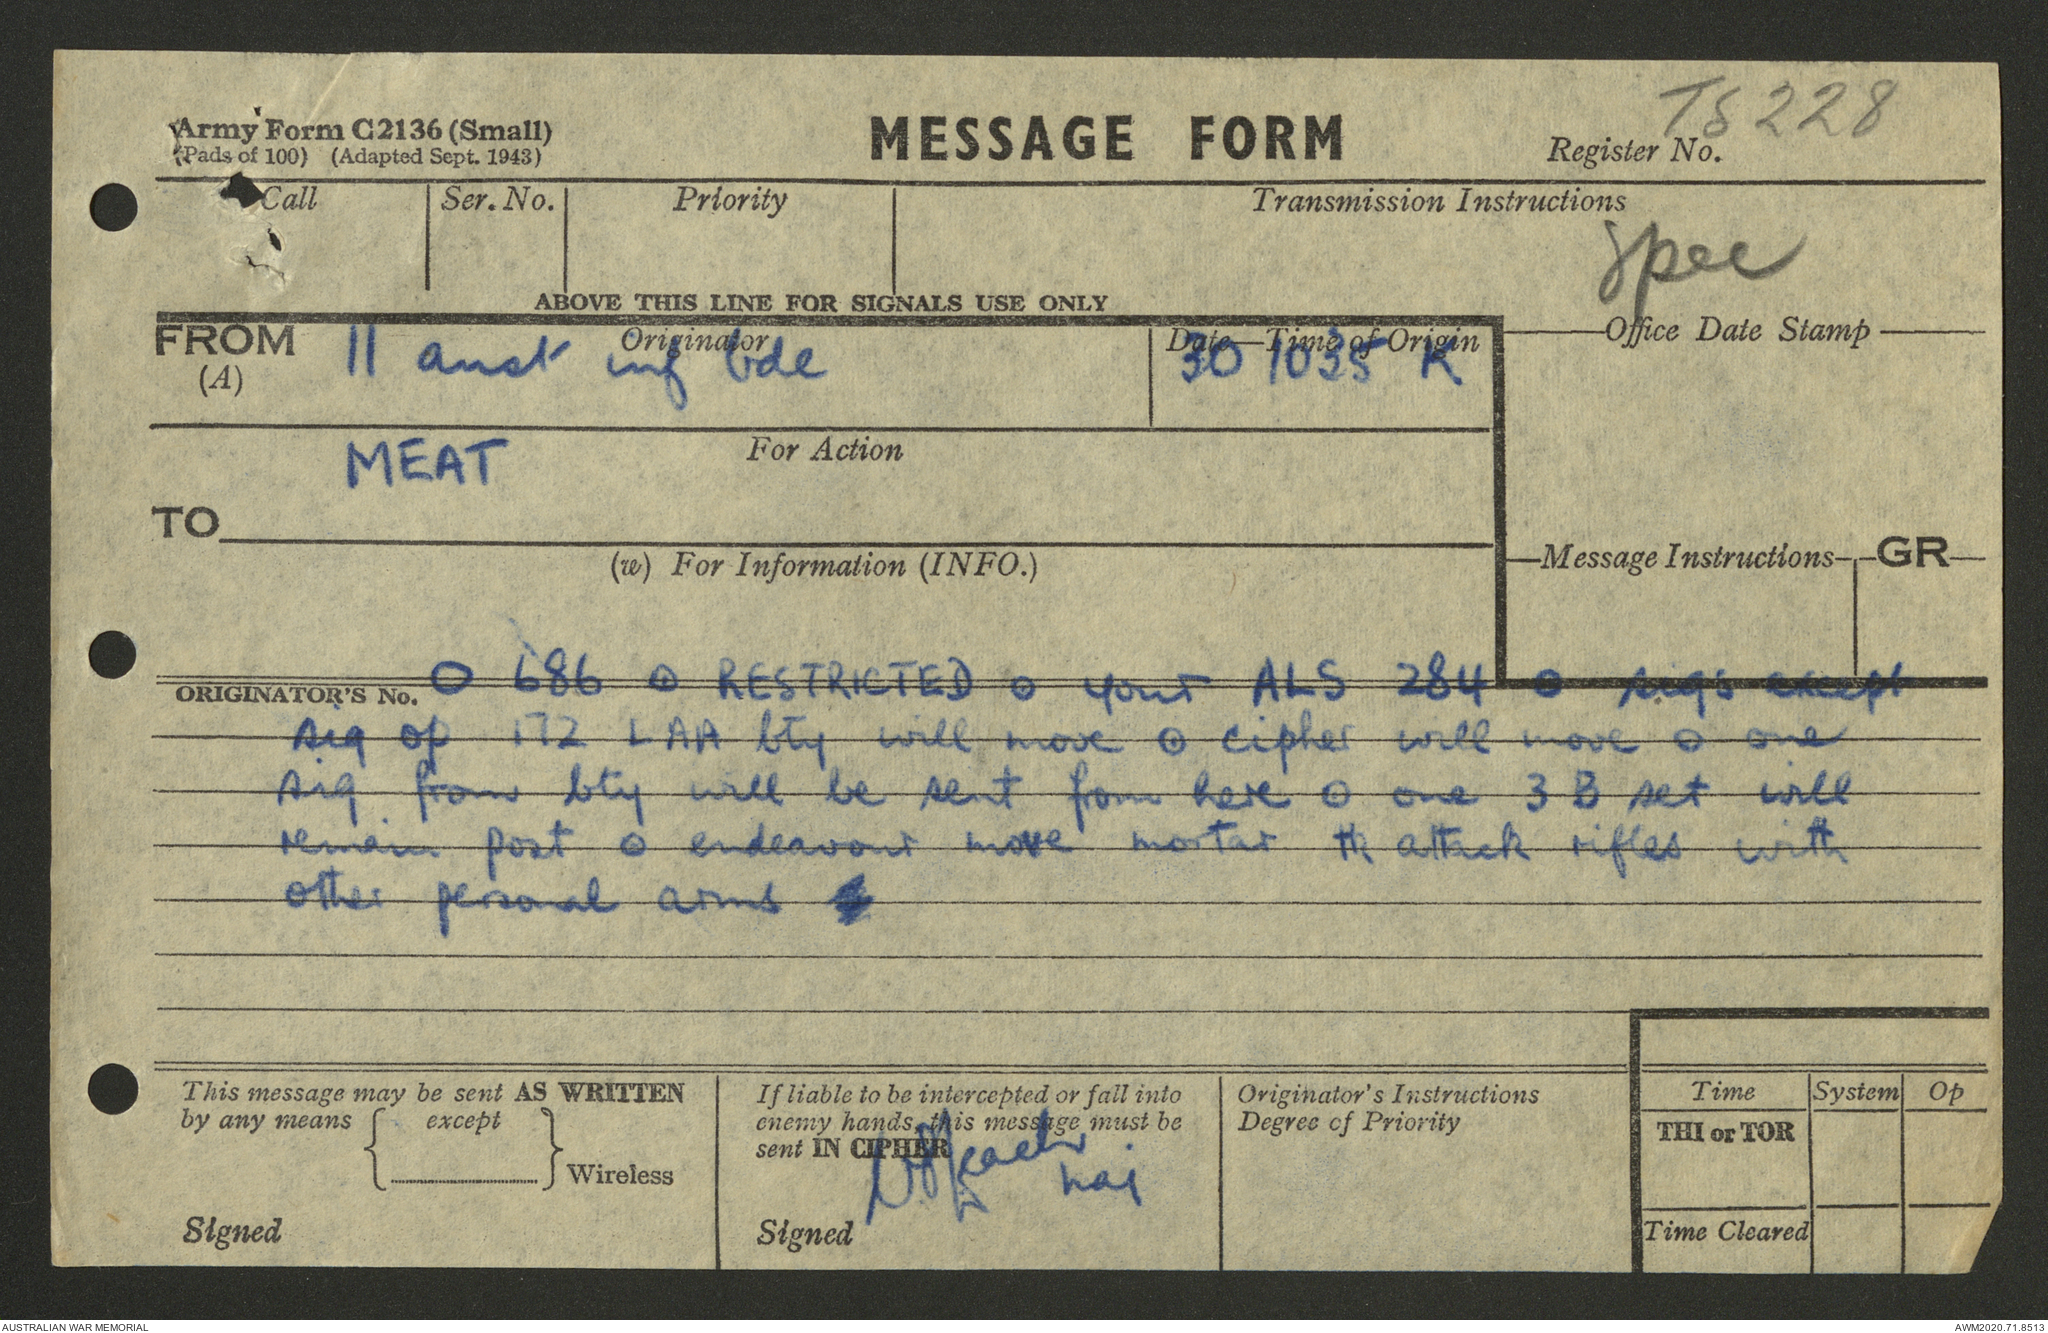 TS 228
Army Form C2136 (Small)
(Pads of 100) (Adapted Sept. 1943)
MESSAGE FORM
Register No.
Call
Ser. No.
Priority
Transmission Instructions
Spec
ABOVE THIS LINE FOR SIGNALS USE ONLY
FROM
(A)
Originator
11 aust inf bde
Date—Time of Origin
30 1035 K
Office Date Stamp
For Action
MEAT
TO
(w) For Information (INFO.)
Message Instructions
GR
ORIGINATOR'S No.
O 686 ⊙ RESTRICTED ⊙ your ALS 284 ⊙ sigs except
sig op 172 LAA bty will move ⊙ cipher will move ⊙ one
sig from bty will be sent from here ⊙ one 3 B set will
remain post ⊙ endeavour move mortar tk attack rifles with
other personal arms
This message may be sent AS WRITTEN
by any means { except } Wireless
Signed
If liable to be intercepted or fall into
enemy hands, this message must be
sent IN CIPHER
Maj
Signed
Originator's Instructions
Degree of Priority
Time
System
Op
THI or TOR
Time Cleared
AUSTRALIAN WAR MEMORIAL
AWM2020.71.8513